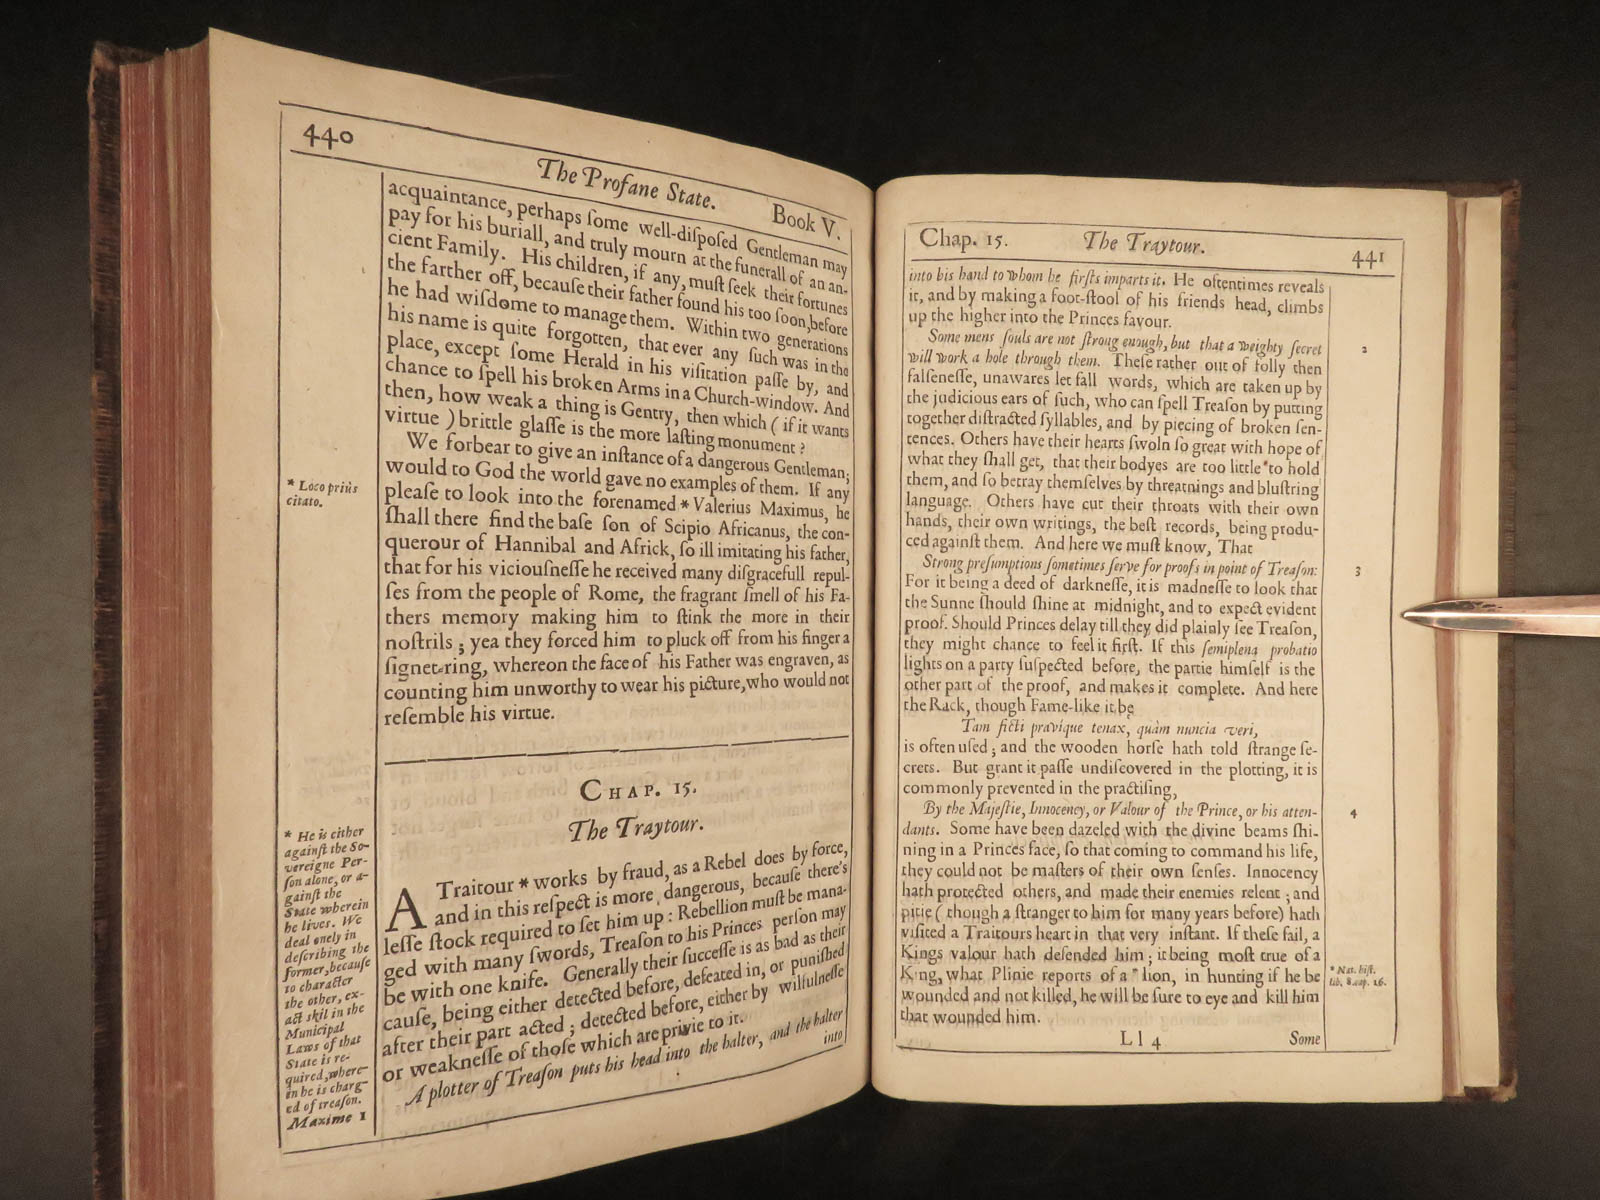 440
The Profane State.
Book V.
acquaintance, perhaps ſome well-diſpoſed Gentleman may
pay for his buriall, and truly mourn at the funerall of an an-
cient Family. His children, if any, muſt ſeek their fortunes
the farther off, becauſe their father found his too ſoon, before
he had wiſdome to manage them. Within two generations
his name is quite forgotten, that ever any ſuch was in the
place, except ſome Herald in his viſitation paſſe by, and
chance to ſpell his broken Arms in a Church-window. And
then, how weak a thing is Gentry, then which ( if it wants
virtue ) brittle glaſſe is the more laſting monument ?
We forbear to give an inſtance of a dangerous Gentleman;
would to God the world gave no examples of them. If any
pleaſe to look into the forenamed * Valerius Maximus, he
ſhall there find the baſe ſon of Scipio Africanus, the con-
querour of Hannibal and Africk, ſo ill imitating his father,
that for his viciouſneſſe he received many diſgracefull repul-
ſes from the people of Rome, the fragrant ſmell of his Fa-
thers memory making him to ſtink the more in their
noſtrils ; yea they forced him to pluck off from his finger a
ſignet-ring, whereon the face of his Father was engraven, as
counting him unworthy to wear his picture, who would not
reſemble his virtue.
* Loco priùs
citato.
CHAP. 15.
The Traytour.
A Traitour * works by fraud, as a Rebel does by force,
and in this reſpect is more dangerous, becauſe there's
leſſe ſtock required to ſet him up : Rebellion muſt be mana-
ged with many ſwords, Treaſon to his Princes perſon may
be with one knife. Generally their ſucceſſe is as bad as their
cauſe, being either detected before, defeated in, or puniſhed
after their part acted ; detected before, either by wilfulneſſe
or weakneſſe of thoſe which are privie to it.
A plotter of Treaſon puts his head into the halter, and the halter
into
* He is either
againſt the So-
vereigne Per-
ſon alone, or a-
gainſt the
State wherein
he lives. We
deal onely in
deſcribing the
former, becauſe
to character
the other, ex-
act skil in the
Municipal
Laws of that
State is re-
quired, where-
in he is charg-
ed of treaſon.
Maxime 1
Chap. 15.
The Traytour.
441
into his hand to whom he firſts imparts it. He oftentimes reveals
it, and by making a foot-ſtool of his friends head, climbs
up the higher into the Princes favour.
Some mens ſouls are not ſtrong enough, but that a weighty ſecret
will work a hole through them. Theſe rather out of folly then
falſeneſſe, unawares let fall words, which are taken up by
the judicious ears of ſuch, who can ſpell Treaſon by putting
together diſtracted ſyllables, and by piecing of broken ſen-
tences. Others have their hearts ſwoln ſo great with hope of
what they ſhall get, that their bodyes are too little to hold
them, and ſo betray themſelves by threatnings and bluſtring
language. Others have cut their throats with their own
hands, their own writings, the beſt records, being produ-
ced againſt them. And here we muſt know, That
Strong preſumptions ſometimes ſerve for proofs in point of Treaſon:
For it being a deed of darkneſſe, it is madneſſe to look that
the Sunne ſhould ſhine at midnight, and to expect evident
proof. Should Princes delay till they did plainly ſee Treaſon,
they might chance to feel it firſt. If this ſemiplena probatio
lights on a party ſuſpected before, the partie himſelf is the
other part of the proof, and makes it complete. And here
the Rack, though Fame-like it be
Tam ficti pravique tenax, quàm nuncia veri,
is often uſed ; and the wooden horſe hath told ſtrange ſe-
crets. But grant it paſſe undiſcovered in the plotting, it is
commonly prevented in the practiſing,
By the Majeſtie, Innocency, or Valour of the Prince, or his atten-
dants. Some have been dazeled with the divine beams ſhi-
ning in a Princes face, ſo that coming to command his life,
they could not be maſters of their own ſenſes. Innocency
hath protected others, and made their enemies relent ; and
pitie ( though a ſtranger to him for many years before) hath
viſited a Traitours heart in that very inſtant. If theſe fail, a
Kings valour hath defended him ; it being moſt true of a
King, what Plinie reports of a * lion, in hunting if he be
wounded and not killed, he will be ſure to eye and kill him
that wounded him.
2
3
4
* Nat. hiſt.
lib. 8. cap. 16.
Ll 4
Some